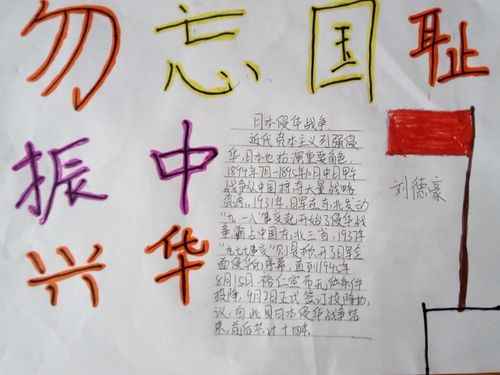 勿忘国耻
振中
兴华
日本侵华战争
近代资本主义列强侵
华,日本也扮演重要角色,
1894年7月-1895年4月中日甲午
战争以中国
。1931年,日军在东北发动
"九一八"事变起开始了侵华战
争霸占中国东北三省,1937年
"七七事变"
面侵华的序幕,直到1945年
8月15日 裕仁宣布无条件
投降,9月2日正式签订投降协
议,日本侵华战争结
束,前后共计十四年
刘德豪